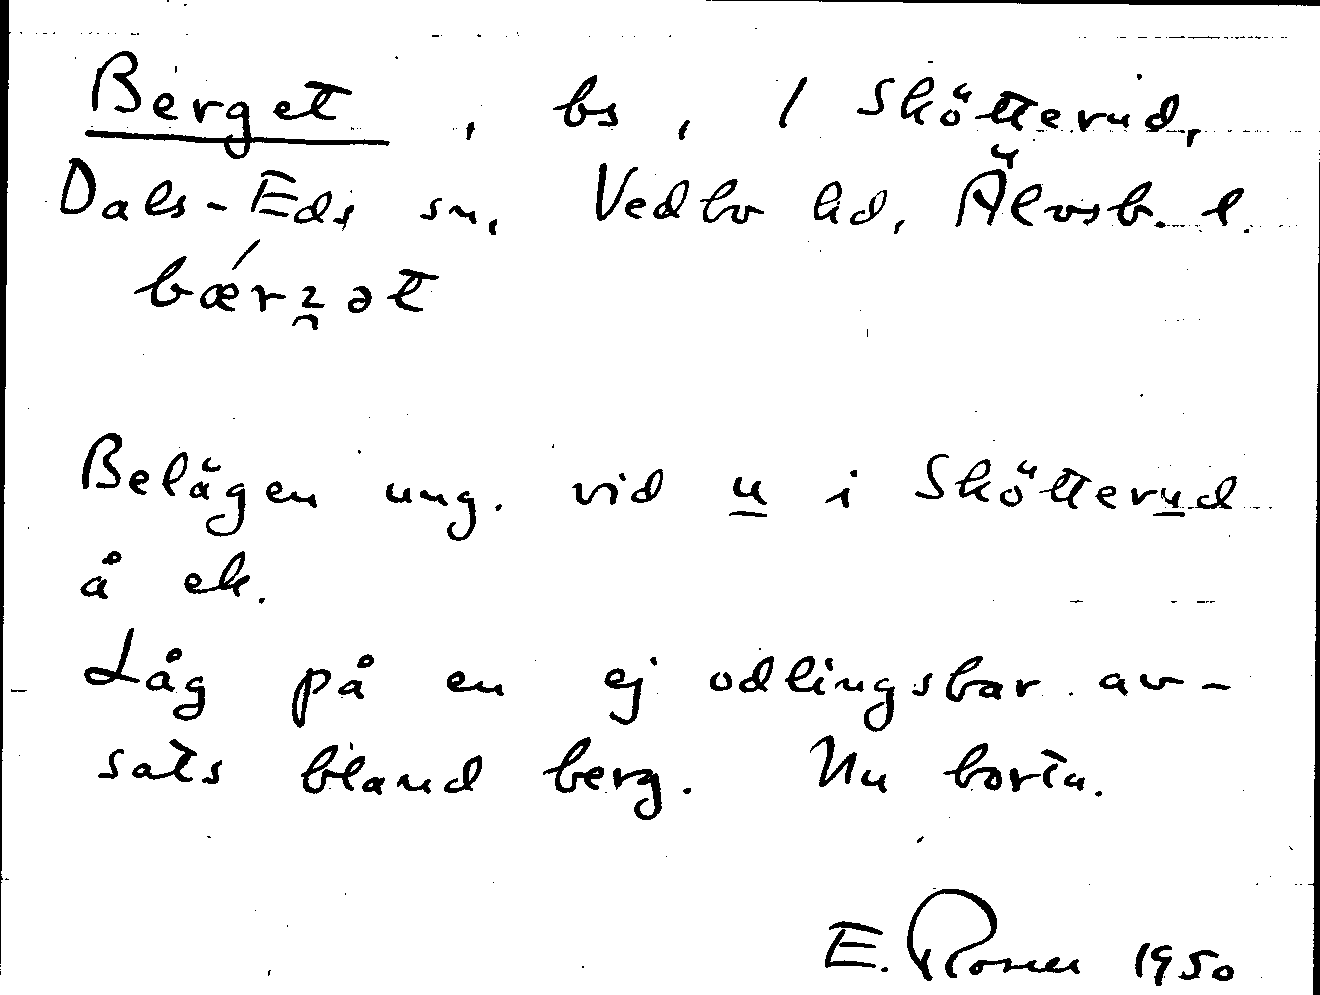 Berget, bs, / Skötterud,
Dals-Eds sn, Vedbo hd, Älvsb. l.
bærgət
Belägen ung. vid u i Skötterud
å ek.
Låg på en ej odlingsbar av-
sats bland berg. Nu borta.
E. 1950